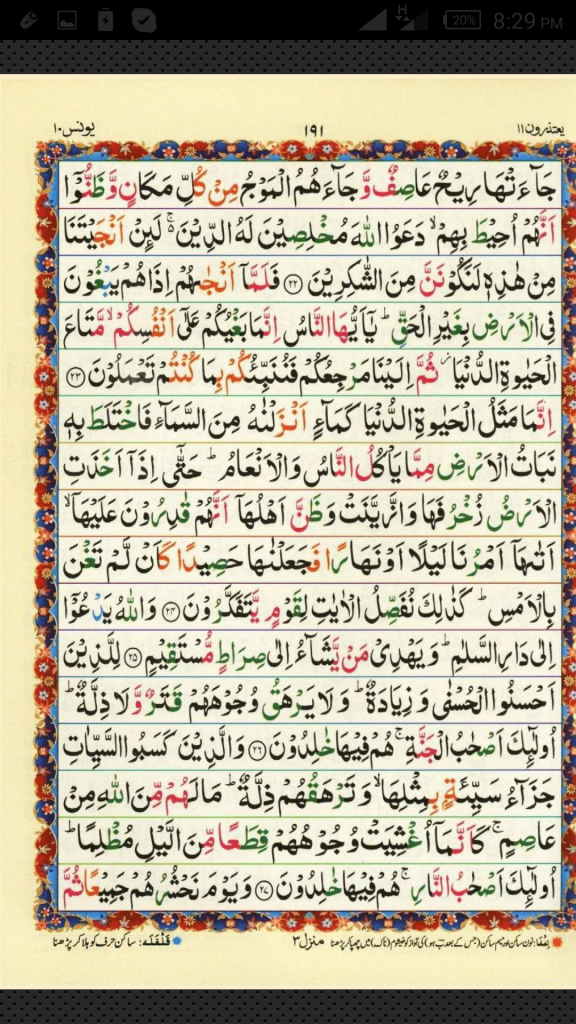 H 20% 8:29 PM
یعتذرون ۱۱ ۱۹۱ یونس ۱۰
جَآءَتْهَا رِيْحٌ عَاصِفٌ وَّجَآءَهُمُ الْمَوْجُ مِنْ كُلِّ مَكَانٍ وَّظَنُّوْۤا
اَنَّهُمْ اُحِيْطَ بِهِمْ ۙ دَعَوُا اللّٰهَ مُخْلِصِيْنَ لَهُ الدِّيْنَ ۚ۬ لَىِٕنْ اَنْجَيْتَنَا
مِنْ هٰذِهٖ لَنَكُوْنَنَّ مِنَ الشّٰكِرِيْنَ ۝۲۲ فَلَمَّاۤ اَنْجٰىهُمْ اِذَا هُمْ يَبْغُوْنَ
فِى الْاَرْضِ بِغَيْرِ الْحَقِّ ؕ يٰۤاَيُّهَا النَّاسُ اِنَّمَا بَغْيُكُمْ عَلٰۤى اَنْفُسِكُمْ ۙ مَّتَاعَ
الْحَيٰوةِ الدُّنْيَا ؗ ثُمَّ اِلَيْنَا مَرْجِعُكُمْ فَنُنَبِّئُكُمْ بِمَا كُنْتُمْ تَعْمَلُوْنَ ۝۲۳
اِنَّمَا مَثَلُ الْحَيٰوةِ الدُّنْيَا كَمَآءٍ اَنْزَلْنٰهُ مِنَ السَّمَآءِ فَاخْتَلَطَ بِهٖ
نَبَاتُ الْاَرْضِ مِمَّا يَاْكُلُ النَّاسُ وَالْاَنْعَامُ ؕ حَتّٰۤى اِذَاۤ اَخَذَتِ
الْاَرْضُ زُخْرُفَهَا وَازَّيَّنَتْ وَظَنَّ اَهْلُهَاۤ اَنَّهُمْ قٰدِرُوْنَ عَلَيْهَاۤ ۙ
اَتٰىهَاۤ اَمْرُنَا لَيْلًا اَوْ نَهَارًا فَجَعَلْنٰهَا حَصِيْدًا كَاَنْ لَّمْ تَغْنَ
بِالْاَمْسِ ؕ كَذٰلِكَ نُفَصِّلُ الْاٰيٰتِ لِقَوْمٍ يَّتَفَكَّرُوْنَ ۝۲۴ وَاللّٰهُ يَدْعُوْۤا
اِلٰى دَارِ السَّلٰمِ ؕ وَيَهْدِىْ مَنْ يَّشَآءُ اِلٰى صِرَاطٍ مُّسْتَقِيْمٍ ۝۲۵ لِلَّذِيْنَ
اَحْسَنُوا الْحُسْنٰى وَزِيَادَةٌ ؕ وَلَا يَرْهَقُ وُجُوْهَهُمْ قَتَرٌ وَّلَا ذِلَّةٌ ؕ
اُولٰٓىِٕكَ اَصْحٰبُ الْجَنَّةِ ۚ هُمْ فِيْهَا خٰلِدُوْنَ ۝۲۶ وَالَّذِيْنَ كَسَبُوا السَّيِّاٰتِ
جَزَآءُ سَيِّئَةٍۭ بِمِثْلِهَا ۙ وَتَرْهَقُهُمْ ذِلَّةٌ ؕ مَا لَهُمْ مِّنَ اللّٰهِ مِنْ
عَاصِمٍ ۚ كَاَنَّمَاۤ اُغْشِيَتْ وُجُوْهُهُمْ قِطَعًا مِّنَ الَّيْلِ مُظْلِمًا ؕ
اُولٰٓىِٕكَ اَصْحٰبُ النَّارِ ۚ هُمْ فِيْهَا خٰلِدُوْنَ ۝۲۷ وَيَوْمَ نَحْشُرُهُمْ جَمِيْعًا ثُمَّ
اخفا: نون ساکن اور میم ساکن (جس کے بعد ب ہو) کی آواز کو خیشوم (ناک) میں چھپا کر پڑھنا منزل ۳ قلقلہ: ساکن حرف کو ہلا کر پڑھنا